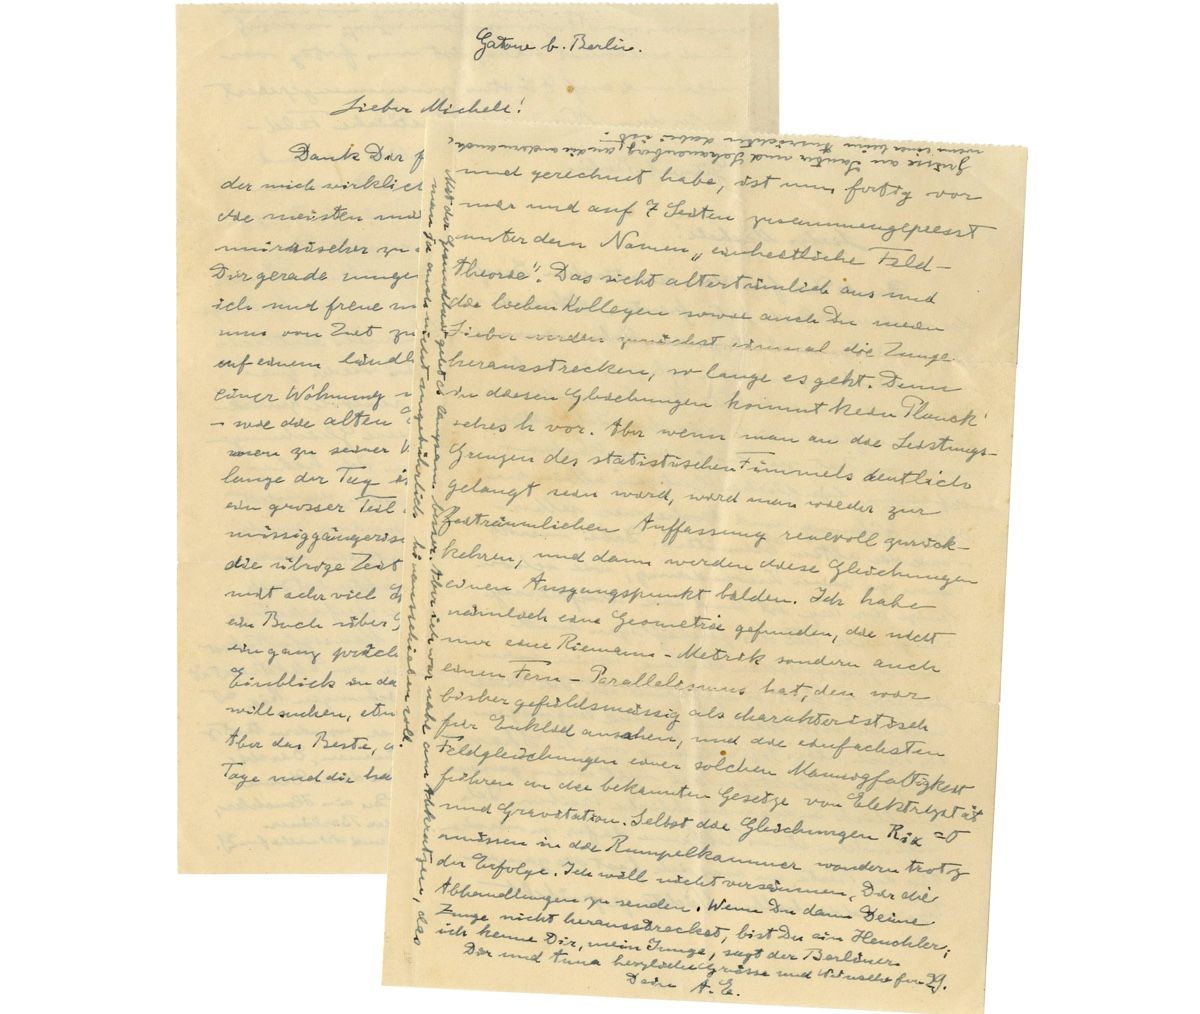 Gatow b. Berlin.
Lieber Michele!
Dank Dir f
der mich wirklich
die meisten
zu
Dir gerade
ich und freue
uns von Zeit zu
auf einem ländl
einer Wohnung
– wie die alten
zu seiner
lange der Tag
ein grosser Teil
müssiggängeris
die übrige Zeit
mit sehr viel
ein Buch über
ein ganz präch
Einblick in da
will suchen, etw
Aber das Beste,
Tage und die ha
und gerechnet habe, ist nun fertig vor
mir und auf 7 Seiten zusammengepresst
unter dem Namen „einheitliche Feld-
theorie“. Das sieht altertümlich aus und
die lieben Kollegen sowie auch Du mein
Lieber werden zunächst einmal die Zunge
herausstrecken, so lange es geht. Denn
in diesen Gleichungen kommt kein Planck'
sches h vor. Aber wenn man an die Leistungs-
Grenzen des statistischen Fimmels deutlich
gelangt sein wird, wird man wieder zur
zeiträumlichen Auffassung reuevoll zurück-
kehren, und dann werden diese Gleichungen
einen Ausgangspunkt bilden. Ich habe
nämlich eine Geometrie gefunden, die nicht
nur eine Riemann-Metrik sondern auch
einen Fern-Parallelismus hat, den wir
bisher gefühlsmässig als charakteristisch
für Euklid ansahen, und die einfachsten
Feldgleichungen einer solchen Mannigfaltigkeit
führen an die bekannten Gesetze von Elektrizität
und Gravitation. Selbst die Gleichungen Rik = 0
müssen in die Rumpelkammer wandern trotz
der Erfolge. Ich will nicht versäumen, Dir die
Abhandlungen zu senden. Wenn Du dann Deine
Zunge nicht herausstreckst, bist Du ein Heuchler;
ich kenne Dir, mein Junge, sagt der Berliner.
Dir und Anna herzliche Grüsse und Wünsche für 29.
Dein A. E.
Mit der Gesundheit geht es langsam besser. Aber ich war nahe am Abkratzen, das
man ja auch nicht ungebührlich hinausschieben soll.
Grüsse an Sauter und Schauenberg, an die andern auch,
wenn sonst kein dabei ist.